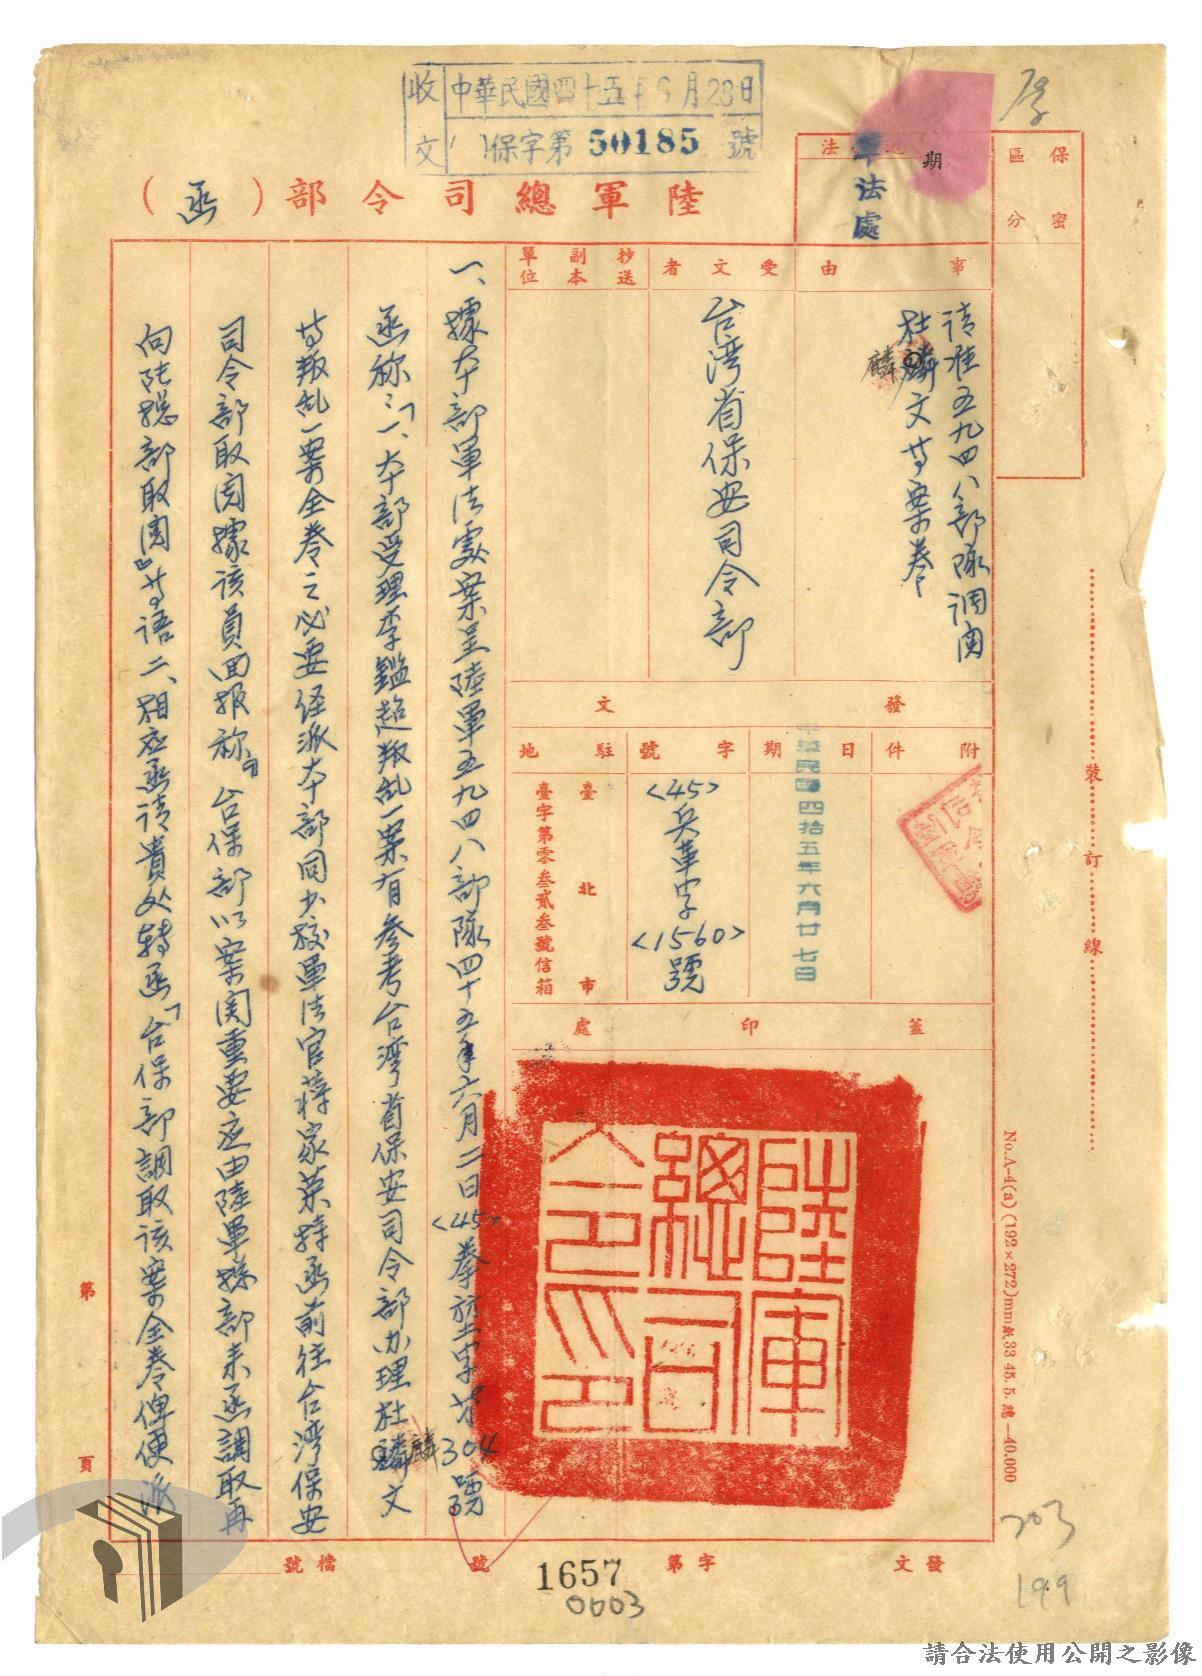 收文
中華民國四十五年6月28日
( )保字第 50185 號
陸軍總司令部(函)
軍法處
期
保密區分
事由
請准五九四八部隊調閱
杜麟文等案卷
麟
受文者
台灣省保安司令部
抄送副本單位
發文
附件
日期
中華民國四拾五年六月廿七日
字號
<45>
兵革字
<1560>
號
駐地
臺北市
臺字第零叁貳叁號信箱
蓋印處
陸軍總司令印
一、據本部軍法處案呈陸軍五九四八部隊四十五年六月二日<45>字第304號
函称:「一、本部受理李鑑超叛乱一案有參考台灣省保安司令部办理杜麟文
麟
等叛乱一案全卷之必要経派本部同少校軍法官蔣家棻持函前往台湾保安
司令部取閱據该員回报称『台保部以案関重要应由陸軍総部来函調取再
向陸総部取閱』等语二、相应函请貴处转函「台保部調取该案全卷俾便派
裝訂線
No.A-4(a) (192×272)mm 紙33 45.5.總—40.000
第 頁
發文 字第 號
檔號
1657
0003
203
199
請合法使用公開之影像